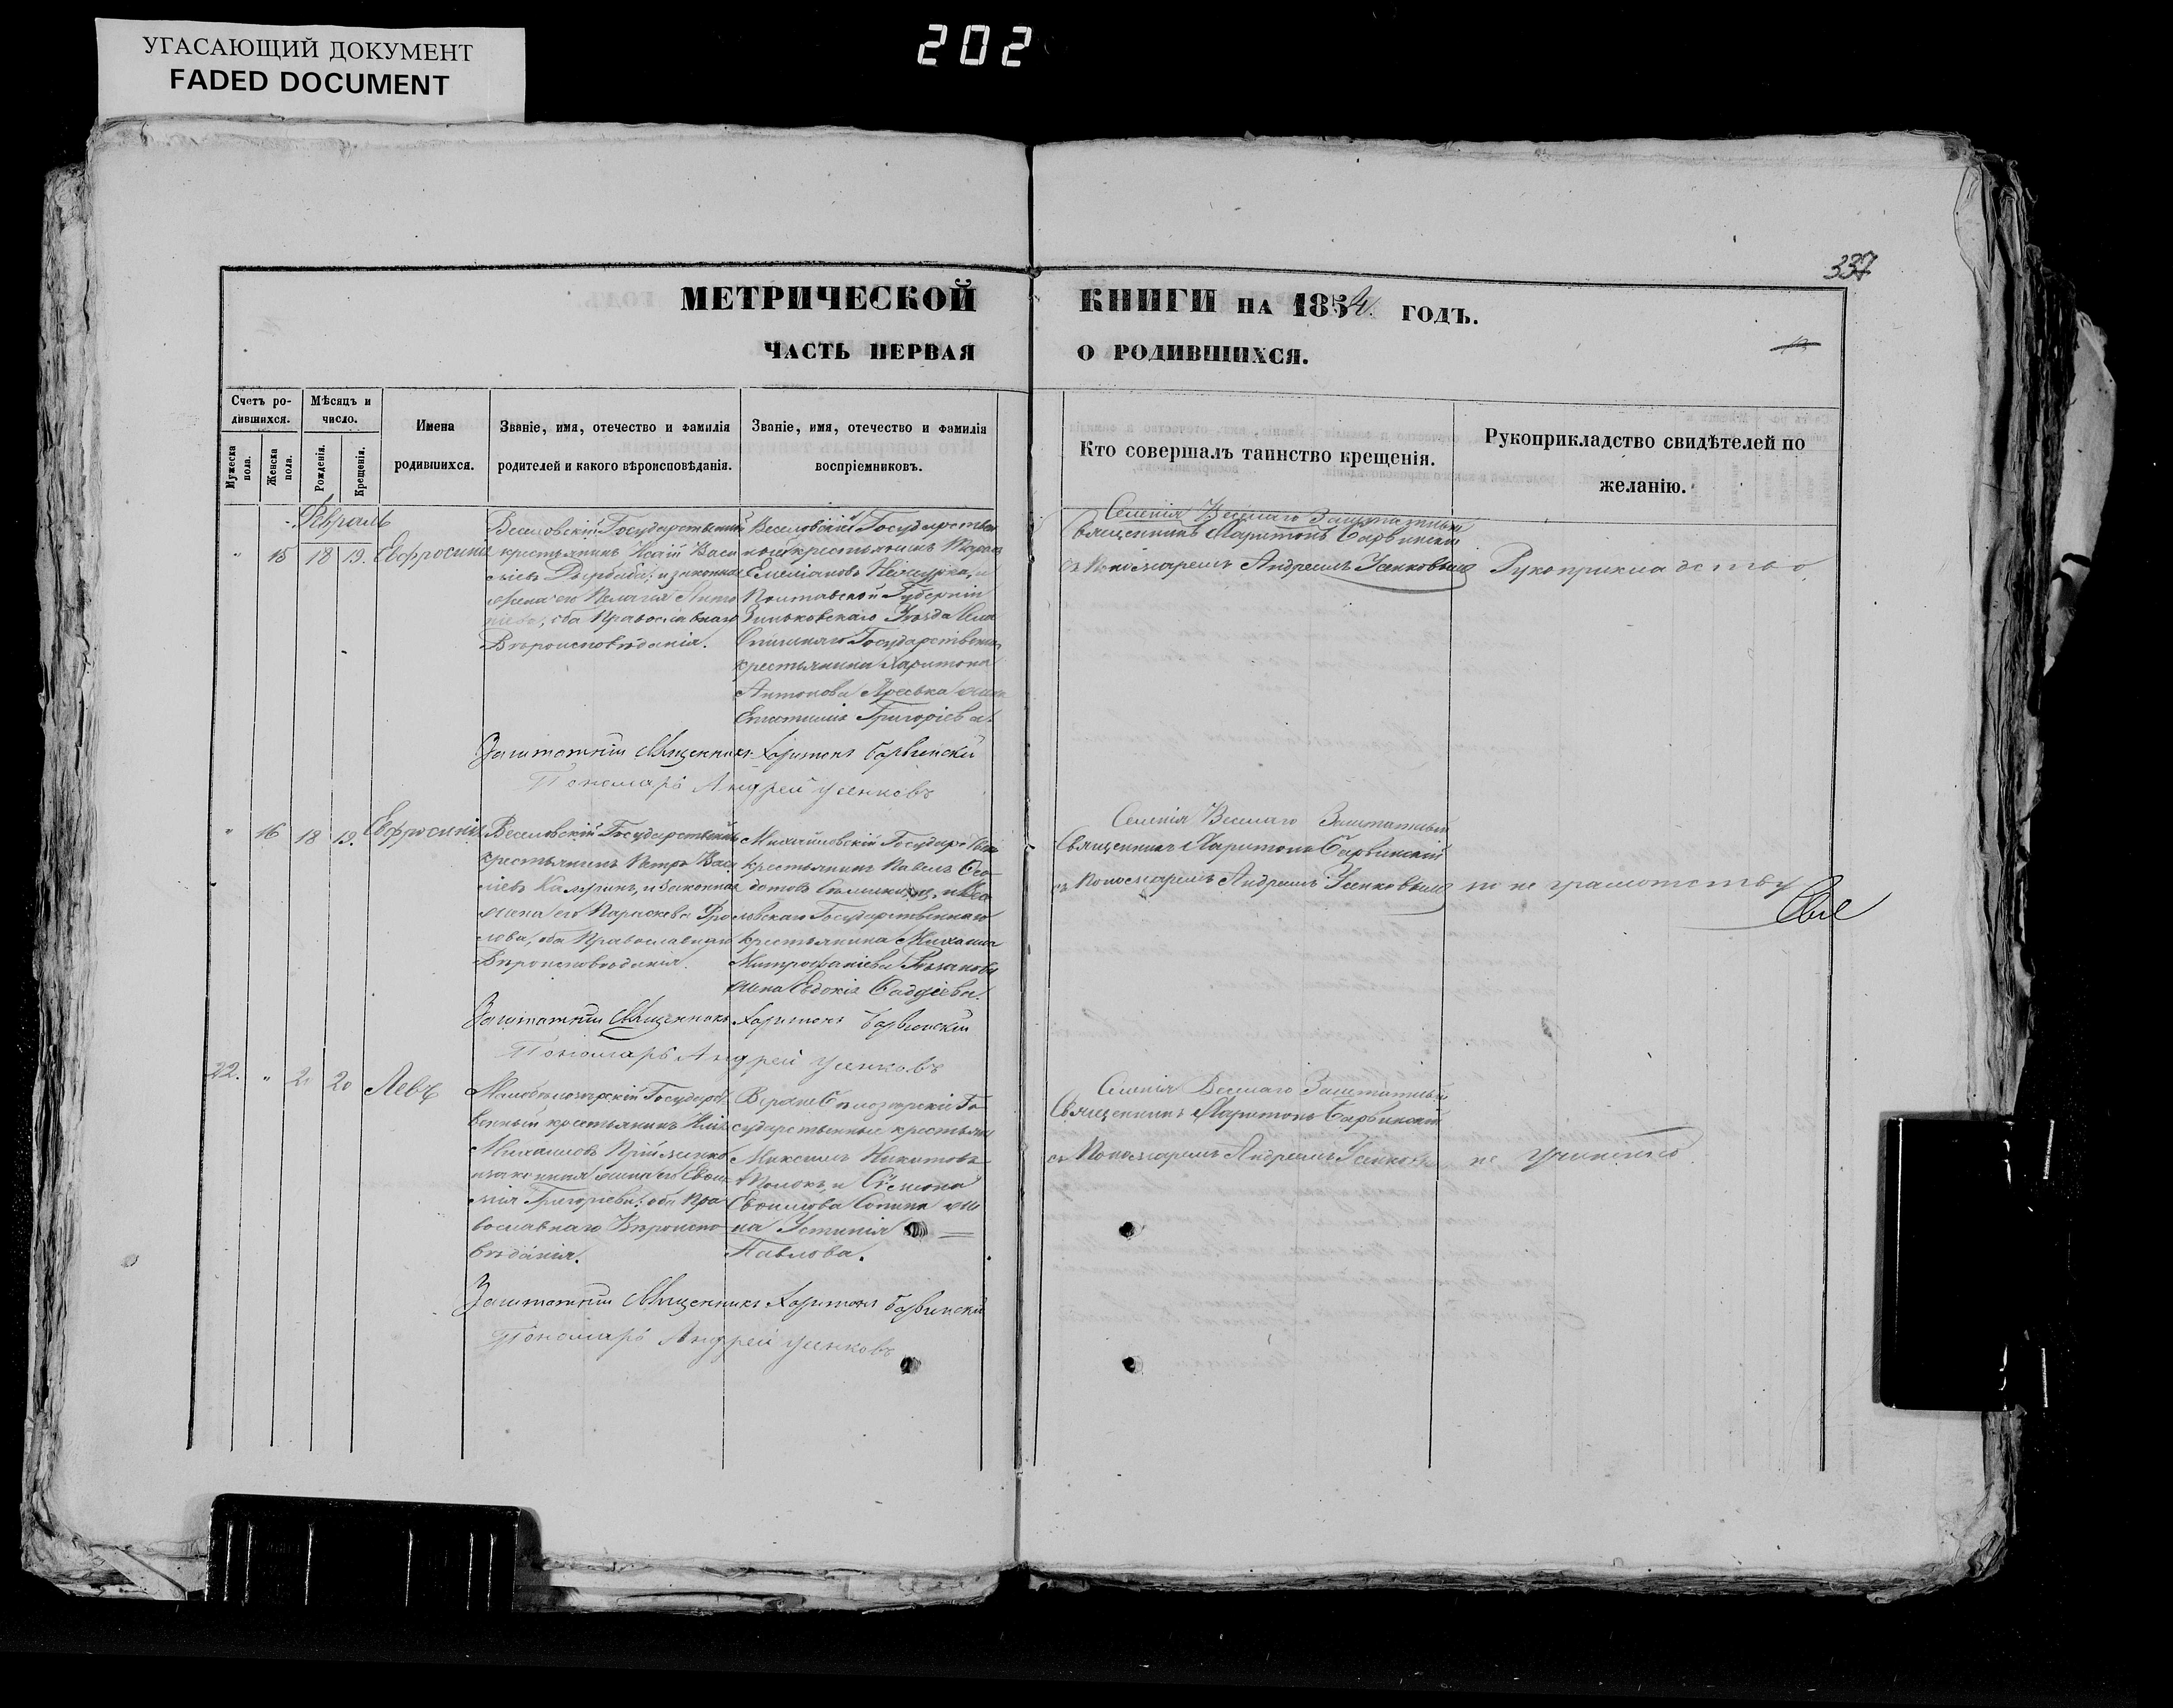 УГАСАЮЩИЙ ДОКУМЕНТ
FADED DOCUMENT
202
337
МЕТРИЧЕСКОЙ КНИГИ НА 1854 ГОДЪ.
ЧАСТЬ ПЕРВАЯ О РОДИВШИХСЯ.
Счетъ ро-
дившихся.
Мужеска пола.
Женска пола.
Мѣсяцъ и
число.
Рожденія.
Крещенія.
Имена
родившихся.
Званіе, имя, отечество и фамилія
родителей и какого вѣроисповѣданія.
Званіе, имя, отечество и фамилія
воспріемниковъ.
Кто совершалъ таинство крещенія.
Рукоприкладство свидѣтелей по
желанію.
Февраль
" 15 18 19. Евфросинія
Веселовскій Государственный
крестьянинъ Исаій Васи
ліевъ и законная
жена его Пелагія Анто
оба Православнаго
Вѣроисповѣданія.
Веселовскій Государствен
ный крестьянинъ
Емеліановъ и
Полтавской Губерніи
Зиньковскаго Уѣзда Села
Государственнаго
крестьянина Харитона
Антонова жена
Григоріева.
Селенія Веселаго Заштатный
Священникъ Харитонъ Барвинскій
съ Пономаремъ Андреемъ Усенковымъ
Рукоприкладство
Заштатный Священникъ Харитонъ Барвинскій
Пономарь Андрей Усенковъ
" 16 18 19. Евфросинія
Веселовскій Государственный
крестьянинъ Петръ Васи
ліевъ и законная
жена его Параскева Фро
лова, оба Православнаго
Вѣроисповѣданія.
Михайловскій Государствен
крестьянинъ Павелъ Ѳео
дотовъ и Весе
ловскаго Государственнаго
крестьянина Михаила
Митрофаніева
жена Евдокія Фаддѣева.
Селенія Веселаго Заштатный
Священникъ Харитонъ Барвинскій
съ Пономаремъ Андреемъ Усенковымъ
по не грамотству
Заштатный Священникъ Харитонъ Барвинскій
Пономарь Андрей Усенковъ
22. " 20 20 Левъ
Малобѣлозерскій Государст
венный крестьянинъ
Михаиловъ
и законная жена его Евѳи
мія Григорьева, оба Пра
вославнаго Вѣроиспо
вѣданія.
Верхнебѣлозерскій Го
сударственные крестьяне
Максимъ Никитовъ
и Симеона
же
на Устинія
Павлова.
Селенія Веселаго Заштатный
Священникъ Харитонъ Барвинскій
съ Пономаремъ Андреемъ Усенковымъ
не учинено
Заштатный Священникъ Харитонъ Барвинскій
Пономарь Андрей Усенковъ